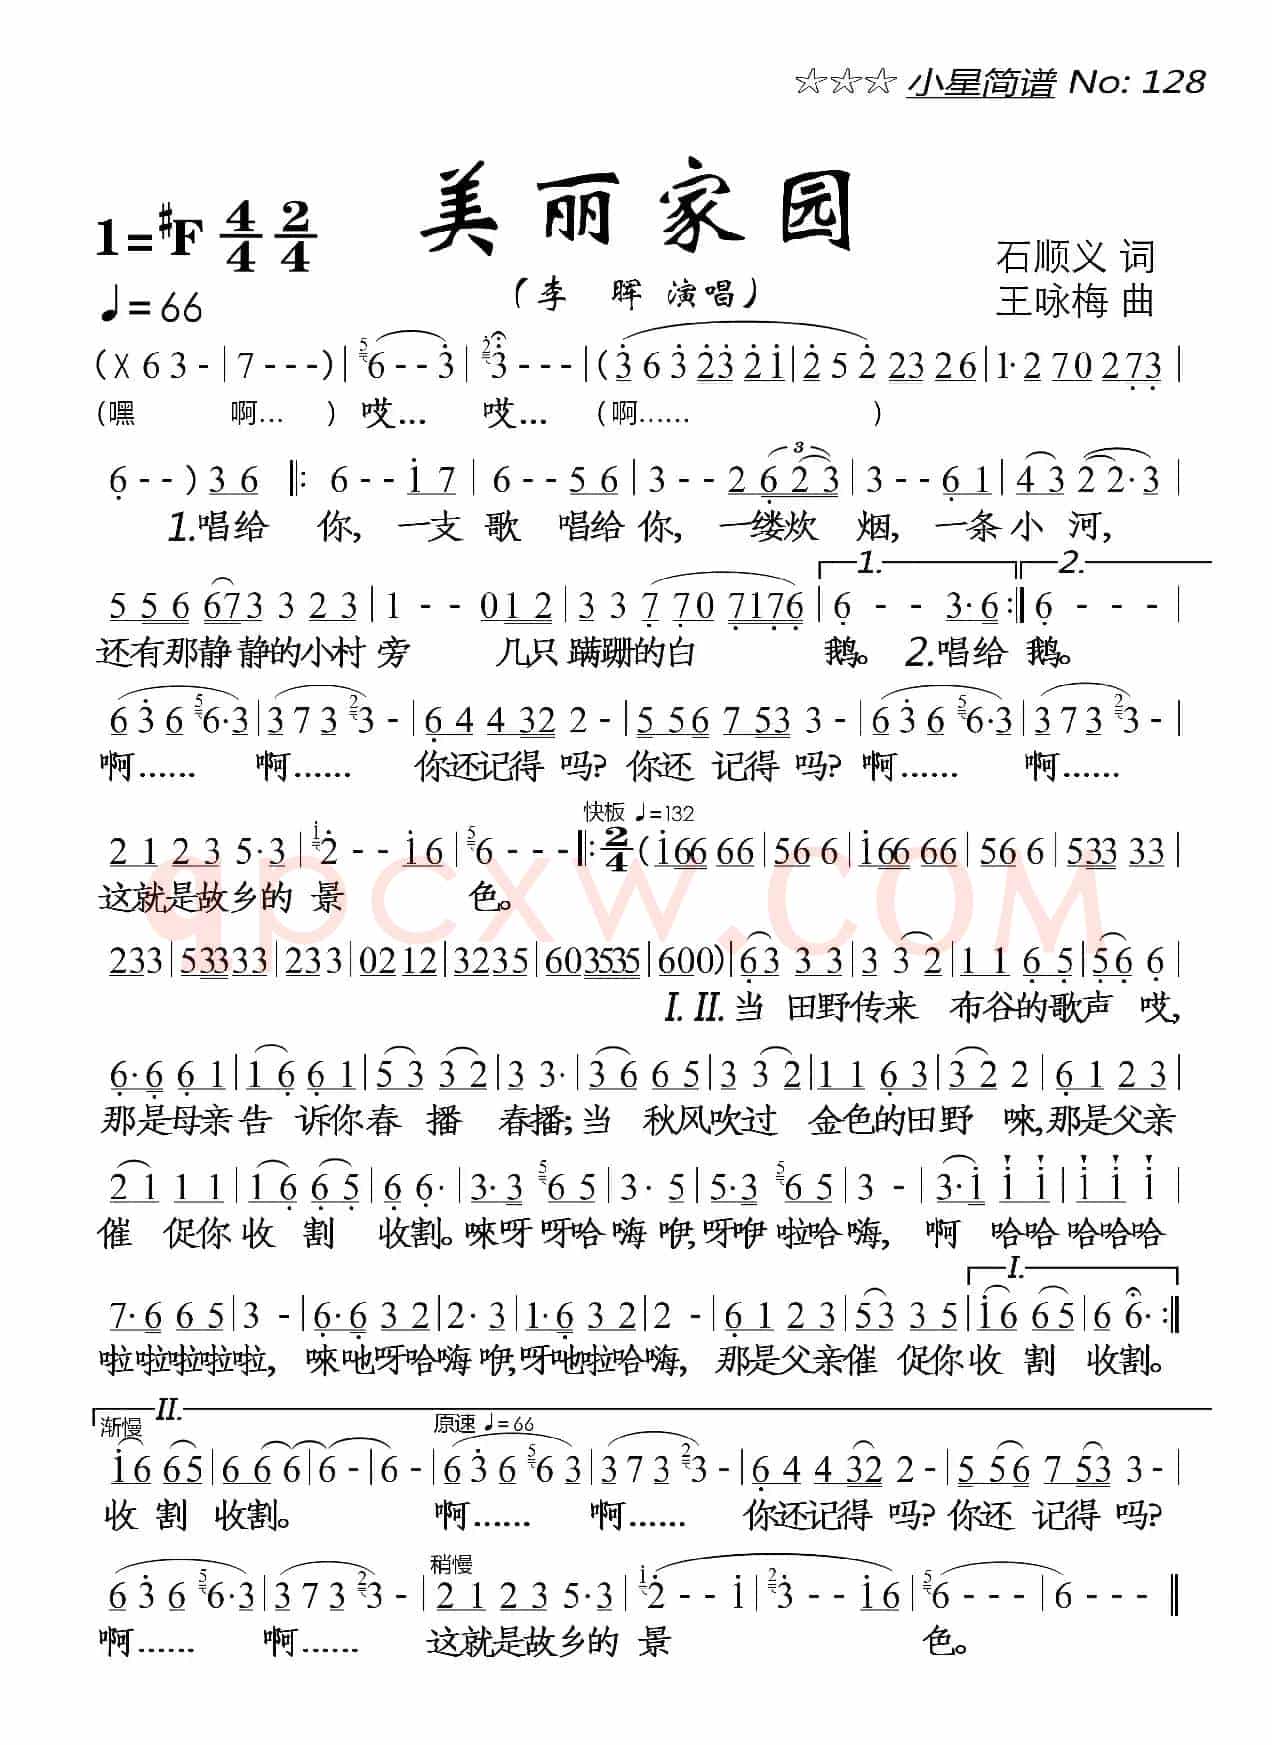 ☆☆☆ 小星简谱 No: 128
美丽家园
1=♯F 4/4 2/4
石顺义 词
♩=66
(李 晖 演唱)
王咏梅 曲
(X 6 3 - | 7 - - -) | 6 - - 3 | 3 - - - | (3 6 3 23 2 1 | 2 5 2 23 2 6 | 1· 2 7 0 2 73 |
(嘿 啊… ) 哎… 哎… (啊…… )
6 - - ) 3 6 ‖: 6 - - 1 7 | 6 - - 5 6 | 3 - - 2 6 2 3 | 3 - - 6 1 | 4 3 2 2· 3 |
1.唱给 你, 一支 歌 唱给 你, 一缕炊 烟, 一条 小 河,
1. 2.
5 5 6 67 3 3 2 3 | 1 - - 0 1 2 | 3 3 7 7 0 7176 | 6 - - 3· 6 :‖ 6 - - - |
还有那静静的小村 旁 几只 蹒跚的白 鹅。 2.唱给 鹅。
6 3 6 6· 3 | 3 7 3 3 - | 6 4 4 32 2 - | 5 56 7 53 3 - | 6 3 6 6· 3 | 3 7 3 3 - |
啊…… 啊…… 你还记得 吗? 你还 记得 吗? 啊…… 啊……
快板 ♩=132
2 1 2 3 5· 3 | 2 - - 1 6 | 6 - - - ‖: 2/4 (1 66 66 | 56 6 | 1 66 66 | 56 6 | 533 33 |
这就是故乡的 景 色。
qpcxw.COM
233 | 53333 | 233 | 0212 | 3235 | 603535 | 600) | 6 3 3 3 | 3 3 2 | 1 1 6 5 | 5 6 6 |
I. II. 当 田野传来 布谷的歌声 哎,
6· 6 6 1 | 1 6 6 1 | 5 3 3 2 | 3 3· | 3 6 6 5 | 3 3 2 | 1 1 6 3 | 3 2 2 | 6 1 2 3 |
那是母亲告 诉你春 播 春播; 当 秋风吹过 金色的田野 唻,那是父亲
2 1 1 1 | 1 6 6 5 | 6 6· | 3· 3 6 5 | 3· 5 | 5· 3 6 5 | 3 - | 3· 1 1 1 | 1 1 1 |
催 促你 收 割 收割。唻呀呀哈嗨咿,呀咿啦哈嗨, 啊 哈哈 哈哈哈
I.
7· 6 6 5 | 3 - | 6· 6 3 2 | 2· 3 | 1· 6 3 2 | 2 - | 6 1 2 3 | 53 3 5 | 1 6 6 5 | 6 6· :‖
啦啦啦啦啦, 唻吔呀哈嗨咿,呀吔啦哈嗨, 那是父亲催 促你收 割 收割。
II.
渐慢 原速 ♩=66
1 6 6 5 | 6 6 6 | 6 - | 6 - | 6 3 6 6 3 | 3 7 3 3 - | 6 4 4 32 2 - | 5 56 7 53 3 - |
收 割 收割。 啊…… 啊…… 你还记得 吗? 你还 记得 吗?
稍慢
6 3 6 6· 3 | 3 7 3 3 - | 2 1 2 3 5· 3 | 2 - - 1 | 3 - - 1 6 | 6 - - - | 6 - - - ‖
啊…… 啊…… 这就是故乡的 景 色。